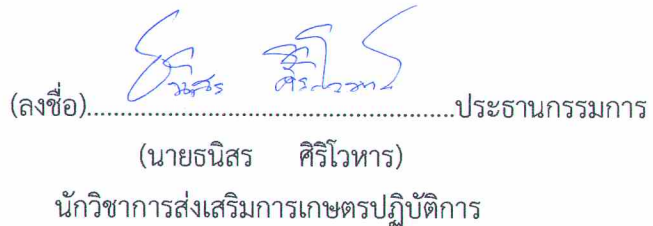 ธนิสร ศิริโวหาร
(ลงชื่อ)......................................................ประธานกรรมการ
(นายธนิสร ศิริโวหาร)
นักวิชาการส่งเสริมการเกษตรปฏิบัติการ